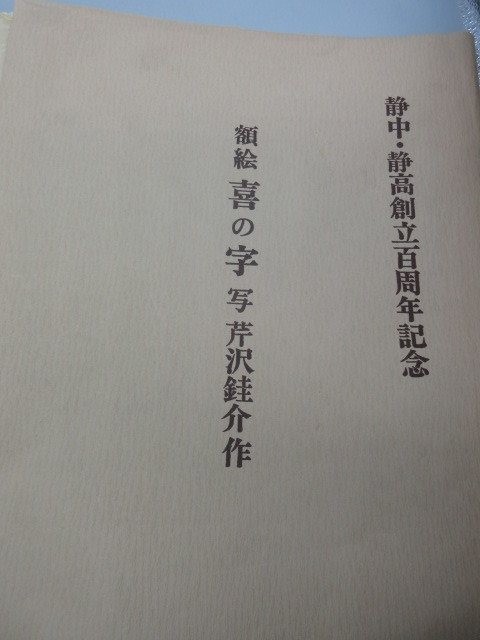 静中・静高創立百周年記念
額絵 喜の字 写 芹沢銈介作